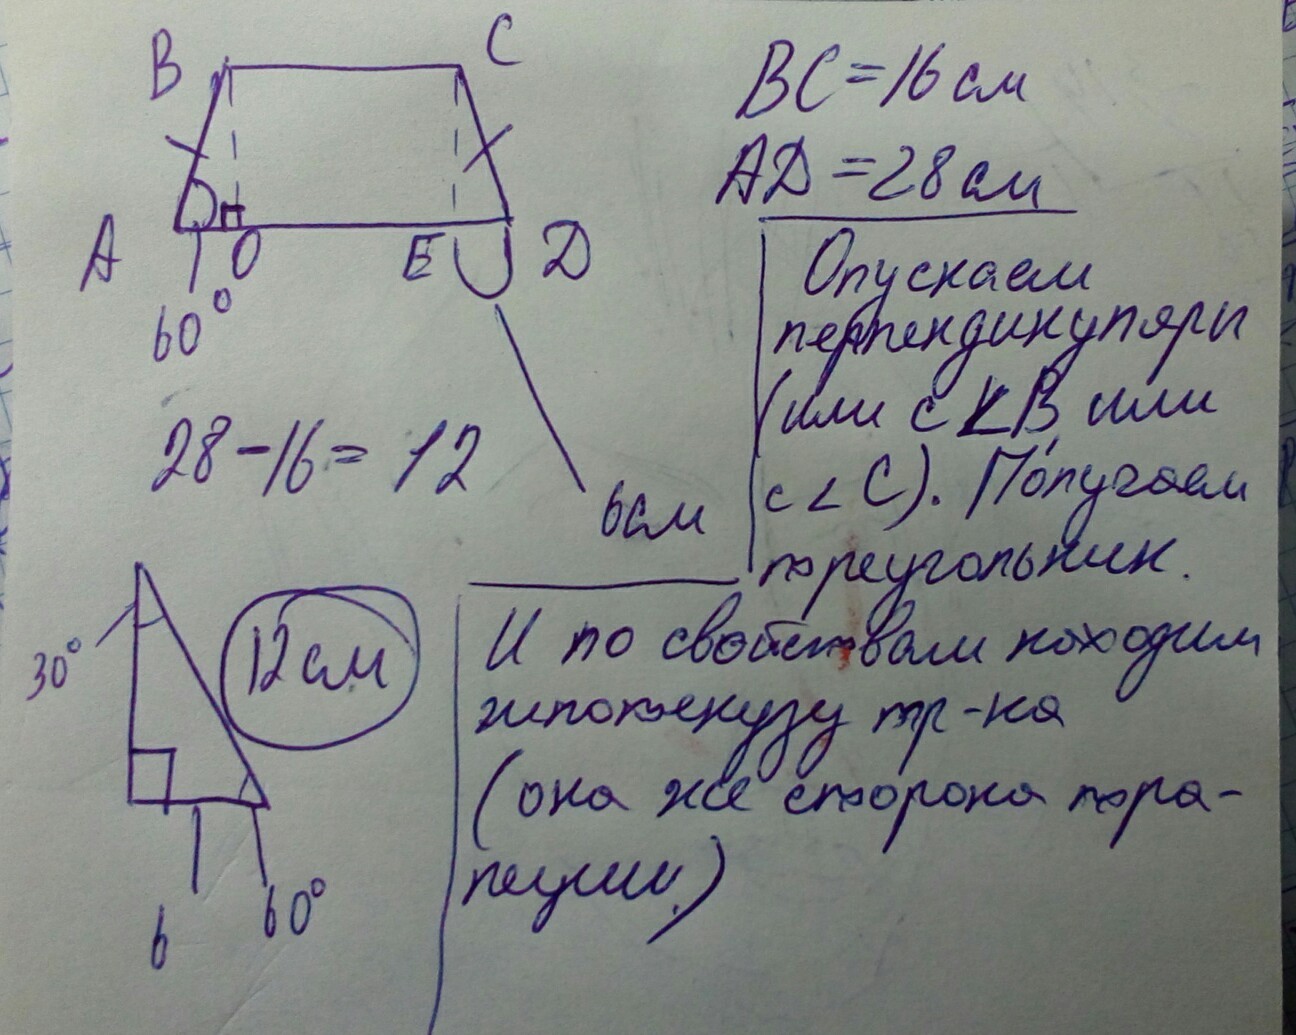 B
C
A
O
E
D
60°
BC=16 см
AD=28 см
28-16= 12
6см
Опускаем
перпендикуляры
(или с ∠B или
с ∠ C). Получаем
треугольник.
И по свойствам находим
гипотенузу тр-ка
(она же сторона тра-
пеции.)
30°
12 см
6
60°